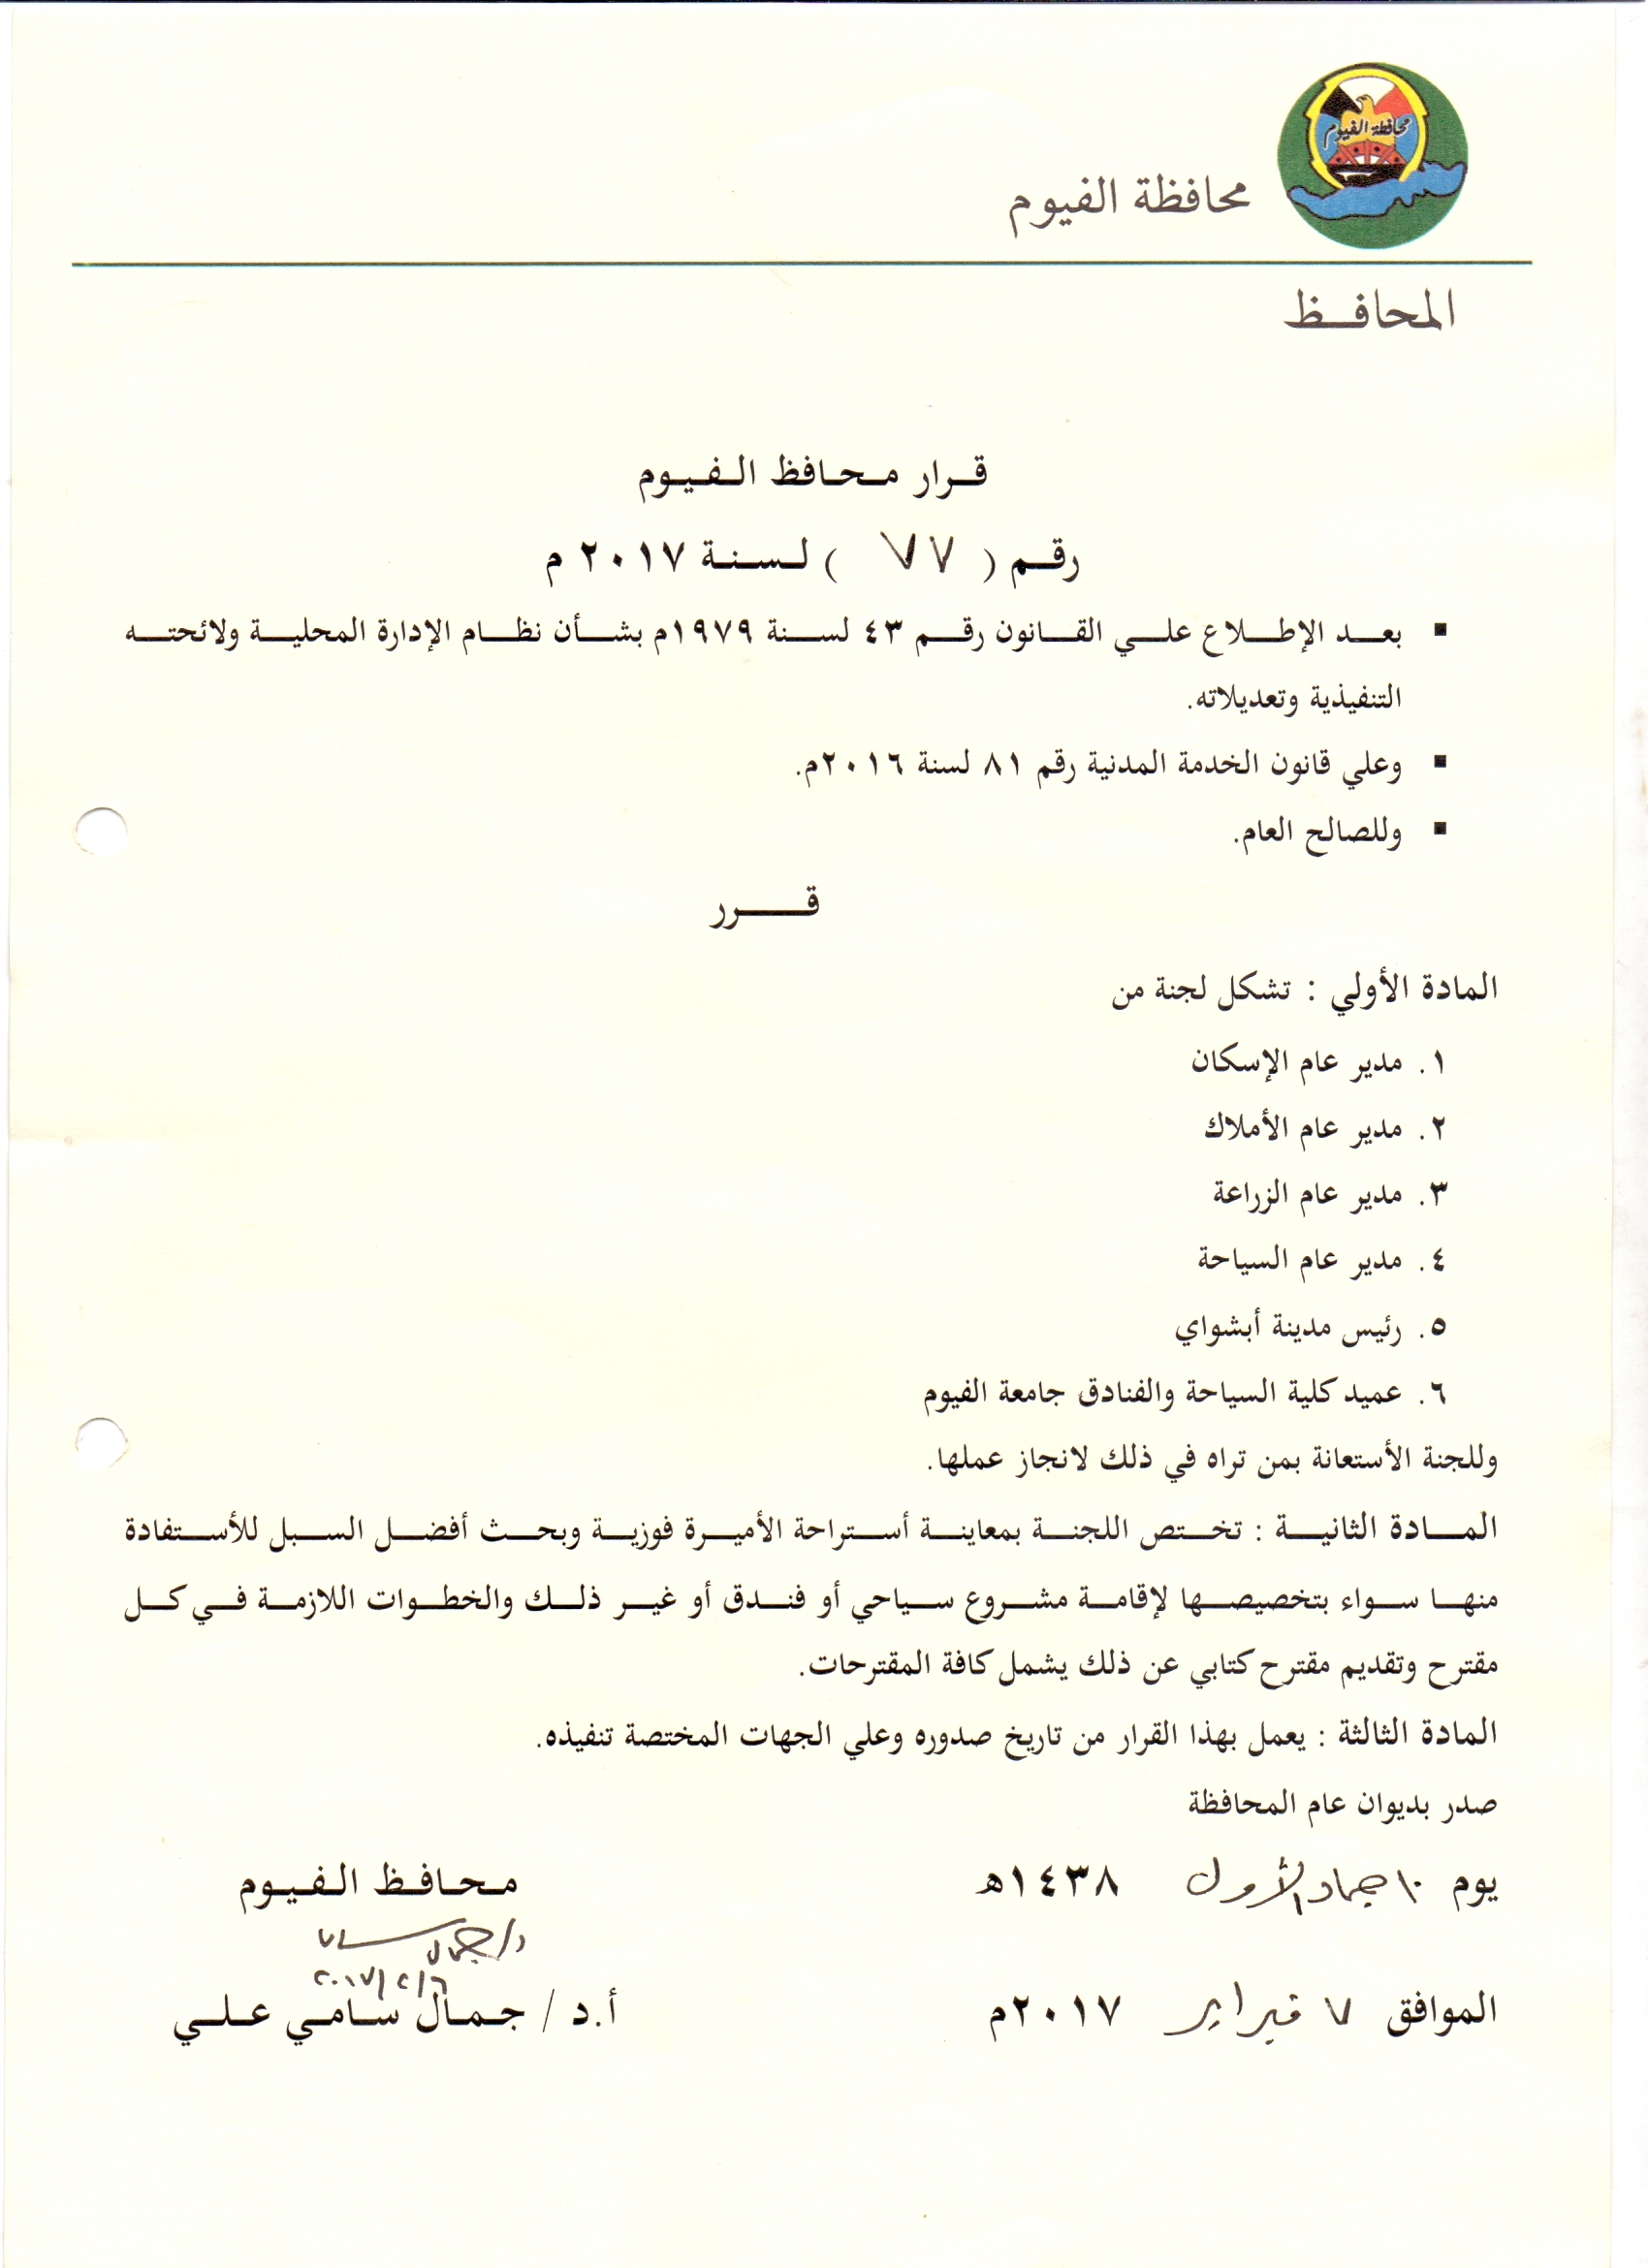 محافظة الفيوم
محافظة الفيوم
المحافظ
قرار محافظ الفيوم
رقم ( ٧٧ ) لسنة ٢٠١٧ م
▪ بعد الإطلاع علي القانون رقم ٤٣ لسنة ١٩٧٩م بشأن نظام الإدارة المحلية ولائحته
التنفيذية وتعديلاته.
▪ وعلي قانون الخدمة المدنية رقم ٨١ لسنة ٢٠١٦م.
▪ وللصالح العام.
قرر
المادة الأولي : تشكل لجنة من
١. مدير عام الإسكان
٢. مدير عام الأملاك
٣. مدير عام الزراعة
٤. مدير عام السياحة
٥. رئيس مدينة أبشواي
٦. عميد كلية السياحة والفنادق جامعة الفيوم
وللجنة الأستعانة بمن تراه في ذلك لانجاز عملها.
المادة الثانية : تختص اللجنة بمعاينة أستراحة الأميرة فوزية وبحث أفضل السبل للأستفادة
منها سواء بتخصيصها لإقامة مشروع سياحي أو فندق أو غير ذلك والخطوات اللازمة في كل
مقترح وتقديم مقترح كتابي عن ذلك يشمل كافة المقترحات.
المادة الثالثة : يعمل بهذا القرار من تاريخ صدوره وعلي الجهات المختصة تنفيذه.
صدر بديوان عام المحافظة
يوم ١٠ جماد الأول ١٤٣٨ه
محافظ الفيوم
د/جمال سامى
٢٠١٧/٢/٦
الموافق ٧ فبراير ٢٠١٧م
أ.د / جمال سامي علي